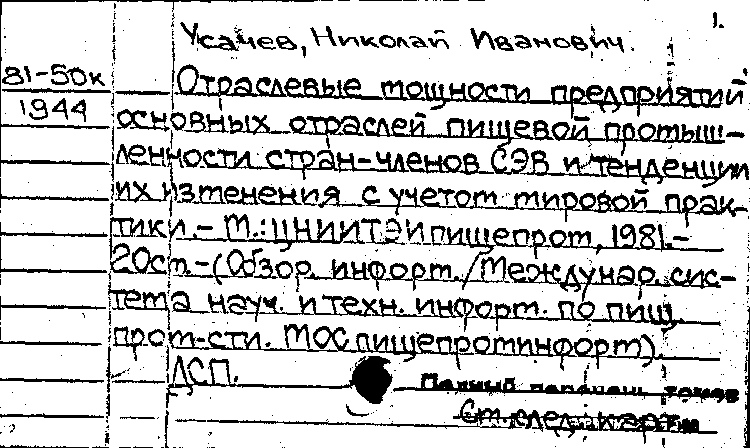 1.
Усачев, Николай Иванович.
81-50к
1944
Отраслевые мощности предприятий
основных отраслей пищевой промыш-
ленности стран-членов СЭВ и тенденции
их изменения с учетом мировой прак-
тики.- М.: ЦНИИТЭИпищепром, 1981.-
20см.-(Обзор. информ./Междунар. сис-
тема науч. и техн. информ. по пищ.
пром-сти. МОСпищепроминформ).
ДСП.
Полный перечень томов
См. след. карты